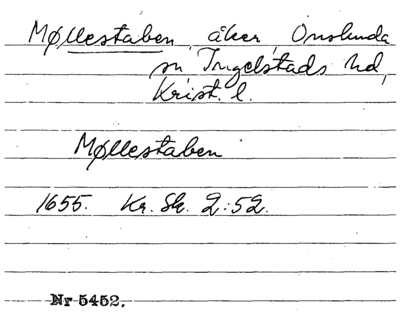 Møllestaben, åker, Onslunda
sn Ingelstads hd,
Krist. l.
Møllestaben
1655. Kr. Sk. 2:52.
Nr 5452.